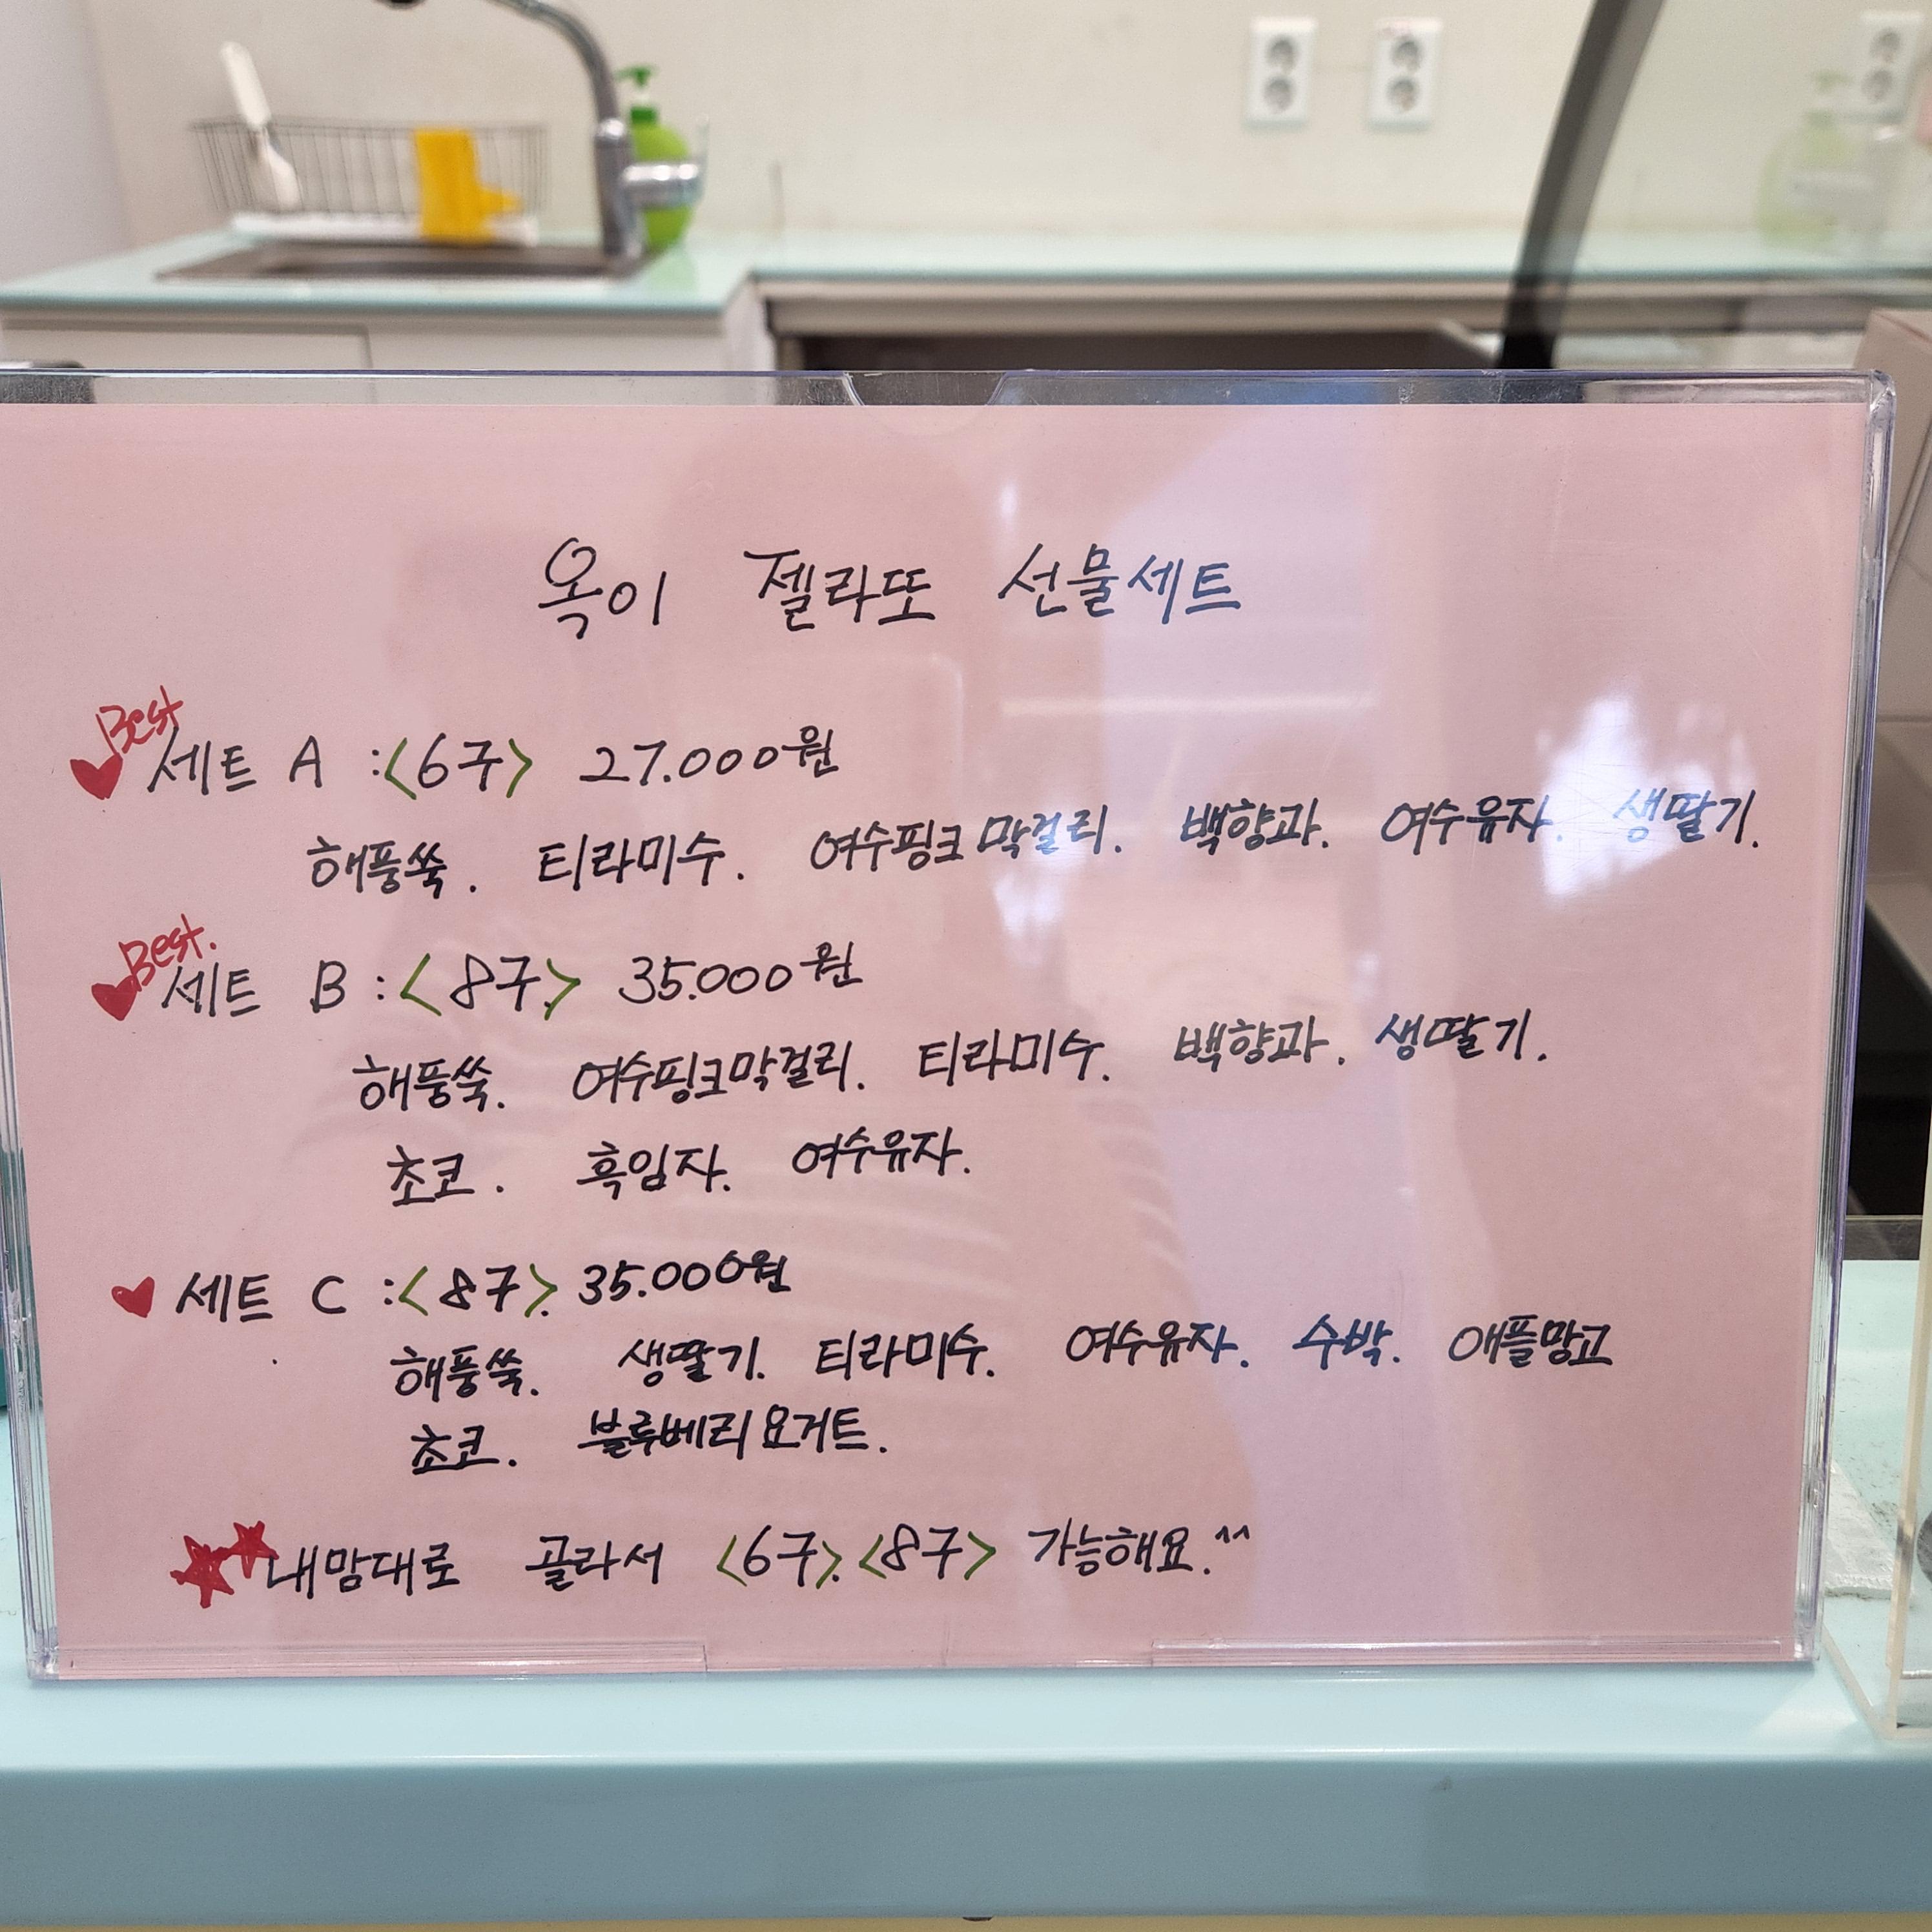 옥이 젤라또 선물세트
Best
세트 A :<6구> 27.000원
해풍쑥. 티라미수. 여수핑크막걸리. 백향과. 여수유자. 생딸기.
Best.
세트 B :<8구> 35.000원
해풍쑥. 여수핑크막걸리. 티라미수. 백향과. 생딸기.
초코. 흑임자. 여수유자.
세트 C :<8구>. 35.000원
해풍쑥. 생딸기. 티라미수. 여수유자. 수박. 애플망고
초코. 블루베리요거트.
내맘대로 골라서 <6구>.<8구> 가능해요.^^